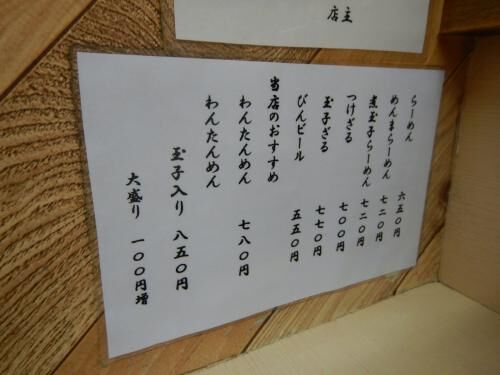 店主
らーめん 六五〇円
めんまらーめん 七二〇円
煮玉子らーめん 七二〇円
つけざる 七〇〇円
玉子ざる 七七〇円
びんビール 五五〇円
当店のおすすめ
わんたんめん 七八〇円
わんたんめん
玉子入り 八五〇円
大盛り 一〇〇円増